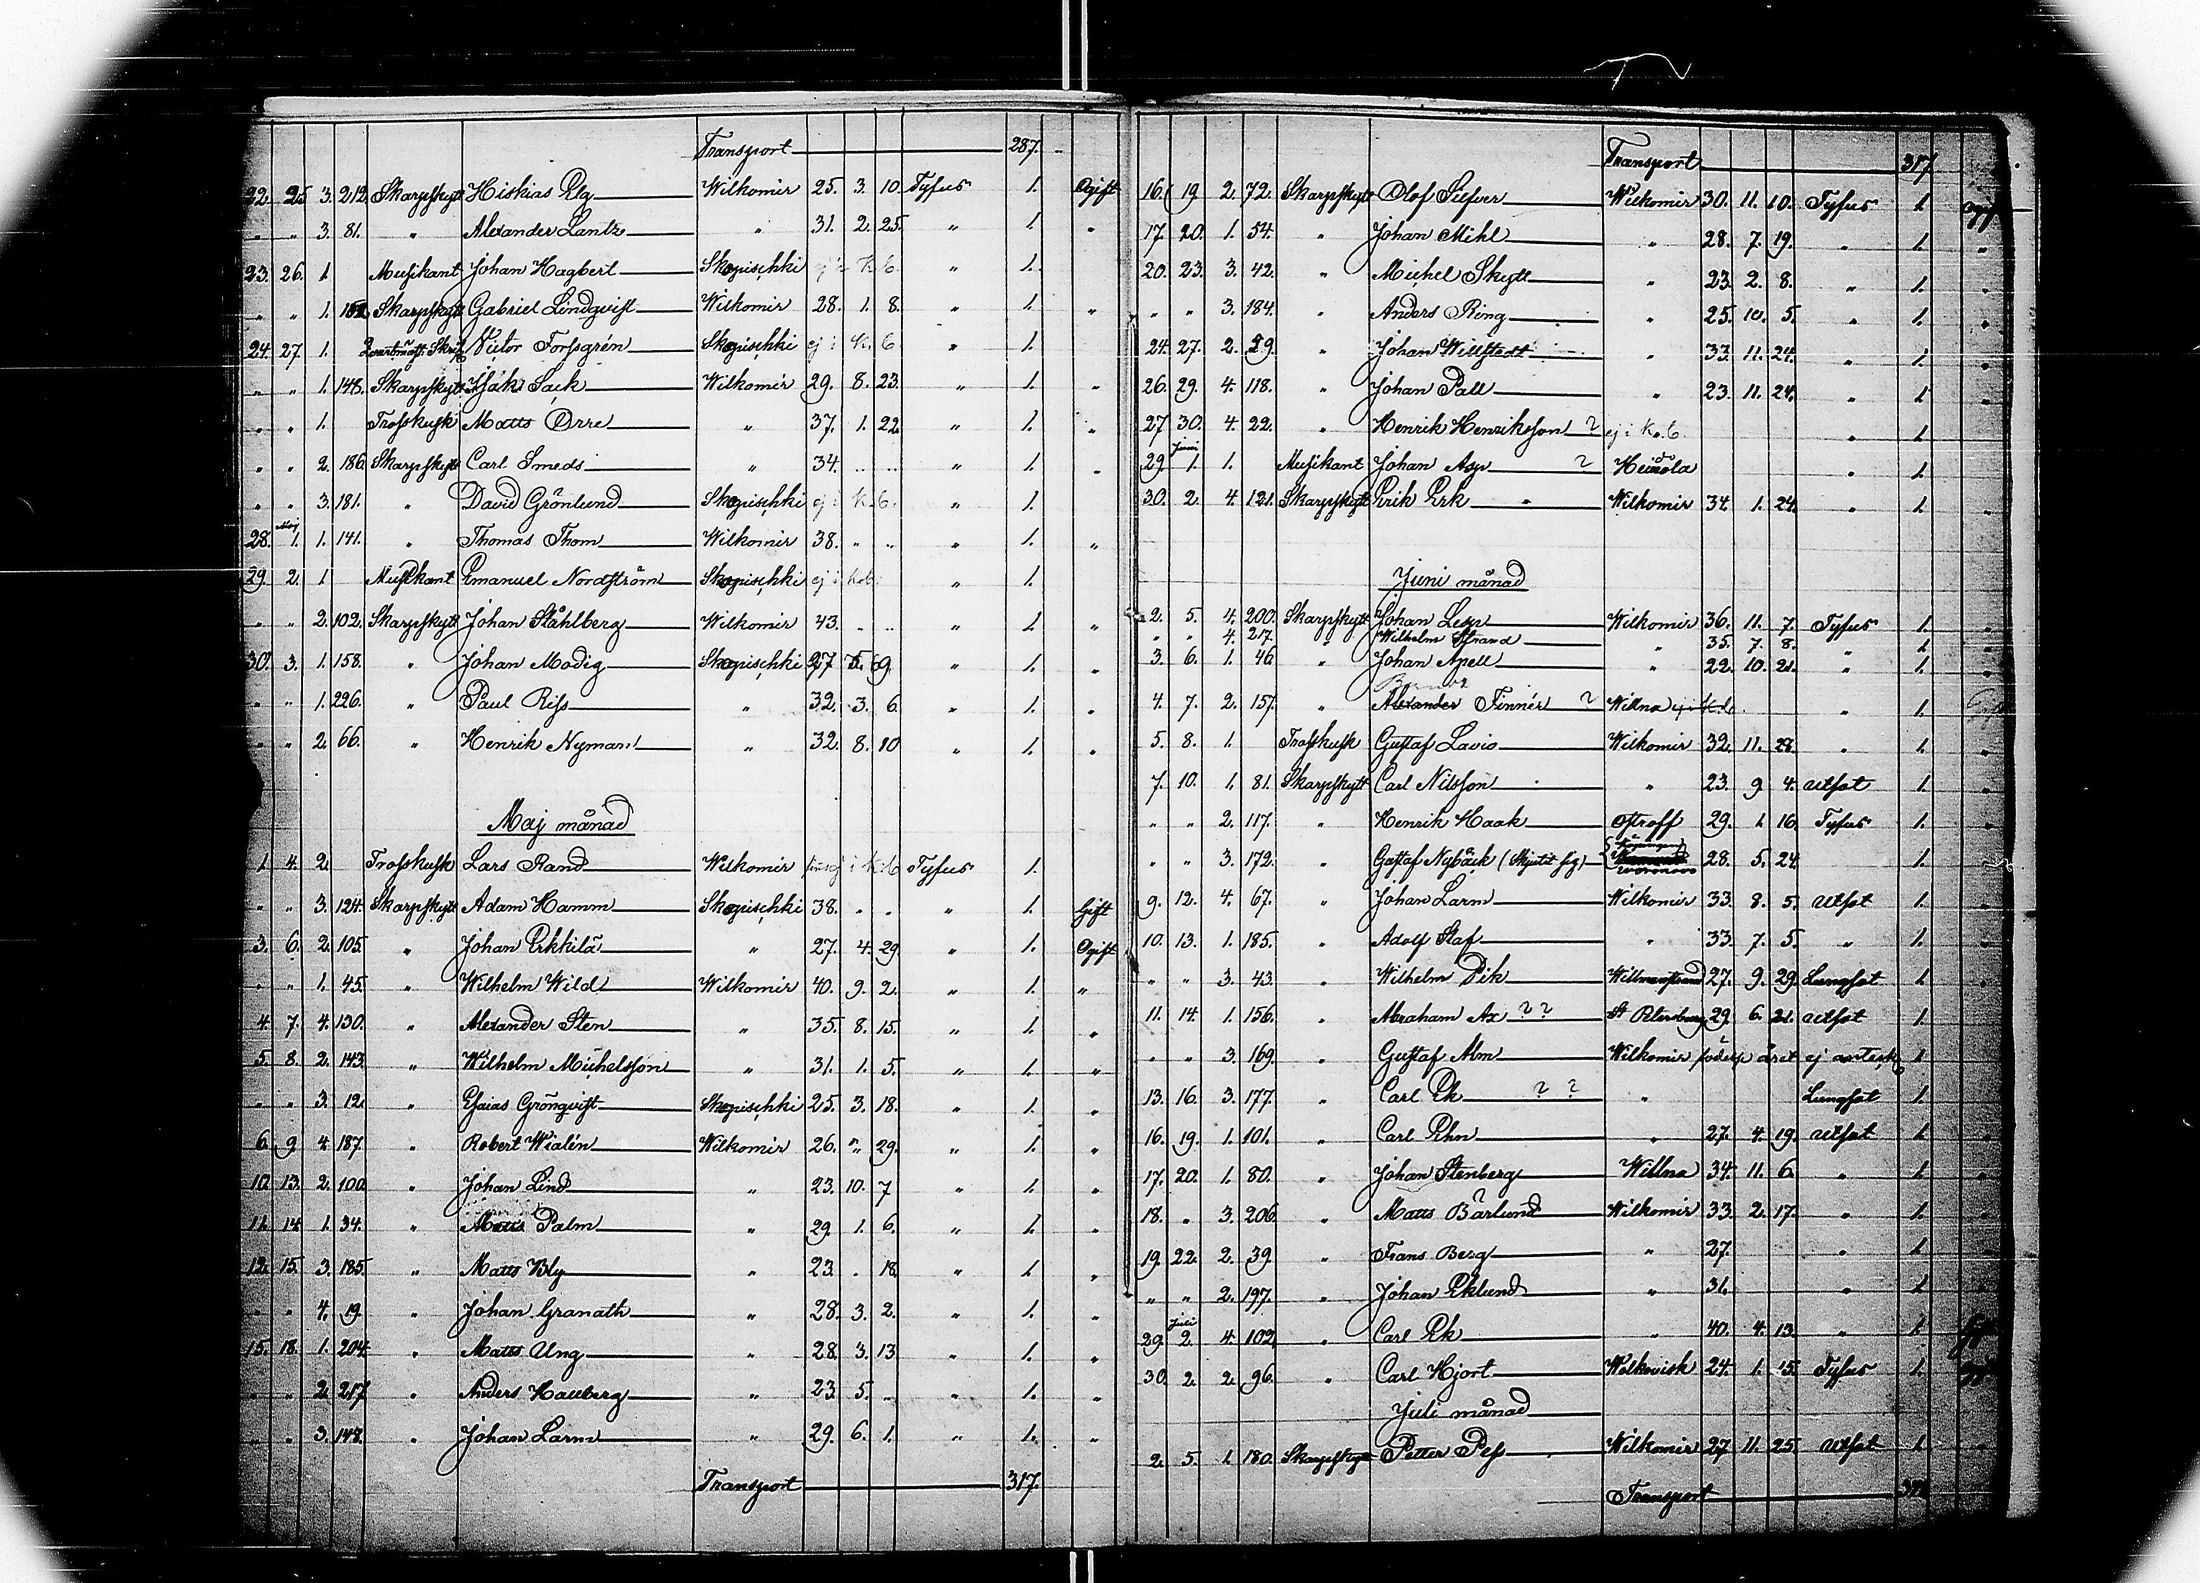 Transport 287.
22. 25 3. 212. Skarpskytt Hiskias Elg Wilkomir 25. 3. 10. Tyfus 1. Ogift
" " 3. 81. " Alexander Lantz " 31. 2. 25. " 1. "
23. 26. 1 Musikant Johan Hagbert Skopischki ej i K.b. " 1.
" " 1. Skarpskytt Gabriel Lindqvist Wilkomir 28. 1. 8. " 1. "
24. 27. 1. Victor Forssgrén Skopischki ej i K.b " 1.
" " 1. 148. Skarpskytt Isak Sack Wilkomir 29. 8. 23. " 1. "
" " 1. Trosskusk Matts Orre " 37. 1. 22. " 1. "
" " 2. 186. Skarpskytt Carl Smeds " 34. " " " 1. "
" " 3. 181. " David Grönlund Skopischki ej i K.b. " 1.
28. Maj 1. 1. 141. " Thomas Thom Wilkomir 38. " " " 1. "
29. 2. 1 Musikant Emanuel Nordström Skopischki ej i K.b. " 1.
" " 2. 102. Skarpskytt Johan Ståhlberg Wilkomir 43. " " " 1. "
30. 3. 1. 158. " Johan Modig Skopischki 27 9. " 1. "
" " 1. 226. " Paul Riss " 32. 3. 6. " 1. "
" " 2. 66. " Henrik Nyman " 32. 8. 10 " 1. "
Maj månad
1. 4. 2. Trosskusk Lars Rand Wilkomir i K.b Tyfus 1.
" " 3. 124. Skarpskytt Adam Hamm Skopischki 38. " " " 1. Gift
3. 6. 2. 105. " Johan Erkkilä " 27. 4. 29. " 1. Ogift
" " 1. 45. " Wilhelm Wild Wilkomir 40. 9. 2. " 1. "
4. 7. 4. 130. " Alexander Sten " 35. 8. 15. " 1. "
5. 8. 2. 143. " Wilhelm Michelsson " 31. 1. 5. " 1. "
" " 3. 12. " Esaias Grönqvist Skopischki 25. 3. 18. " 1. "
6. 9. 4. 187. " Robert Wialén Wilkomir 26. " 29. " 1. "
10. 13. 2. 100. " Johan Lind " 23. 10. 7 " 1. "
11. 14. 1. 34. " Matts Palm " 29. 1. 6. " 1. "
12. 15. 3. 185. " Matts Bly " 23. . 18. " 1. "
" " 4. 19. " Johan Granath " 28. 3. 2. " 1. "
15. 18. 1. 204. " Matts Ung " 28. 3. 13 " 1. "
" " 2. 217. " Anders Hallberg " 23. 5. " " 1. "
" " 3. 148. " Johan Larm " 29. 6. 1. " 1. "
Transport 317.
Transport 317
16. 19. 2. 72. Skarpskytt Olof Silfver Wilkomir 30. 11. 10. Tyfus 1.
17. 20. 1. 54. " Johan Mihl " 28. 7. 19. " 1. "
20. 23. 3. 42. " Michel Skytt " 23. 2. 8. " 1. "
" " 3. 184. " Anders Ring " 25. 10. 5. " 1. "
24. 27. 2. 29. " Johan Willstedt " 33. 11. 24. " 1. "
26. 29. 4. 118. " Johan Pall " 23. 11. 24. " 1 "
27 30. 4. 22. " Henrik Henriksson ? ej i K.b. " 1
29. Juni 1. 1. Musikant Johan Asp ? Heinola " 1
30. 2. 4. 121. Skarpskytt Erik Erk Wilkomir 34. 1. 24. " 1. "
Juni månad
2. 5. 4. 200. Skarpskytt Johan Lesp Wilkomir 36. 11. 7. Tyfus 1. "
" " 4. 217. " Wilhelm Strand " 35. 7. 8. " 1. "
3. 6. 1. 46. " Johan Apell " 22. 10. 21. " 1. "
4. 7. 2. 157. " Alexander Finnér ? Willna " 1.
5. 8. 1. Trosskusk Gustaf Lavio Wilkomir 32. 11. 28. " 1. "
7. 10. 1. 81. Skarpskytt Carl Nilsson " 23. 9. 4. Utsot 1. "
" " 2. 117. " Henrik Haak Ostroff 29. 1. 16. Tyfus 1. "
" " 3. 172. " Gustaf Nybäck (Skjutit sig) 28. 5. 24. 1.
9. 12. 4. 67. " Johan Larm Wilkomir 33. 8. 5. Utsot 1. "
10. 13. 1. 185. " Adolf Staf " 33. 7. 5. " 1. "
" " 3. 43. " Wilhelm Pik Willmanstrand 27. 9. 29. Lungsot 1. "
11. 14. 1. 156. " Abraham Ax ? ? St Petersburg 29. 6. 21. Utsot 1. "
" " 3. 169. " Gustaf Alm Wilkomir året ej anteckn 1.
13. 16. 3. 177. " Carl Ek ? ? " Lungsot 1. "
16. 19. 1. 101. " Carl Ehn " 27. 4. 19. Utsot 1. "
17. 20. 1. 80. " Johan Stenberg Willna 34. 11. 6. " 1. "
18. " 3. 206. " Matts Bärlund Wilkomir 33. 2. 17. " 1. "
19. 22. 2. 39. " Frans Berg " 27. " 1. "
" " 2. 197. " Johan Eklund " 31. " 1. "
29. Juli 2. 4. 102. " Carl Ek " 40. 4. 13. " 1.
30. 2. 2. 96. " Carl Hjort Wolkovisk 24. 1. 15. Tyfus 1.
Juli månad
2. 5. 1. 180. Skarpskytt Petter Pess Wilkomir 27. 11. 25. Utsot 1. "
Transport